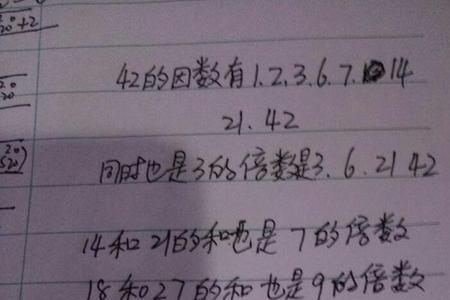 20+2
42的因数有1.2.3.6.7.14
21.42
同时也是3的倍数是3.6.21 42
14和21的和也是7的倍数
18和27的和也是9的倍数